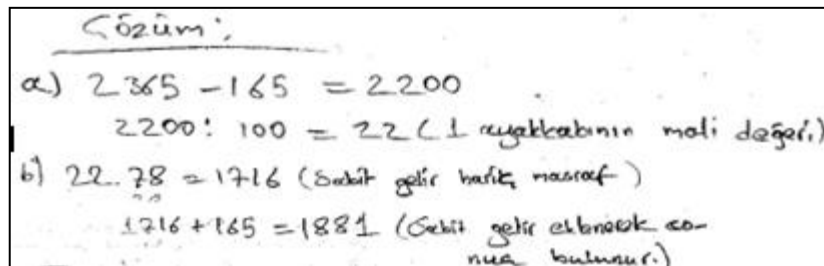 Çözüm:
a) 2365 - 165 = 2200
2200 : 100 = 22 (1 ayakkabının mali değeri.)
b) 22.78 = 1716 (Sabit gelir hariç masraf)
1716 + 165 = 1881 (Sabit gelir eklenerek so-
nuç bulunur.)